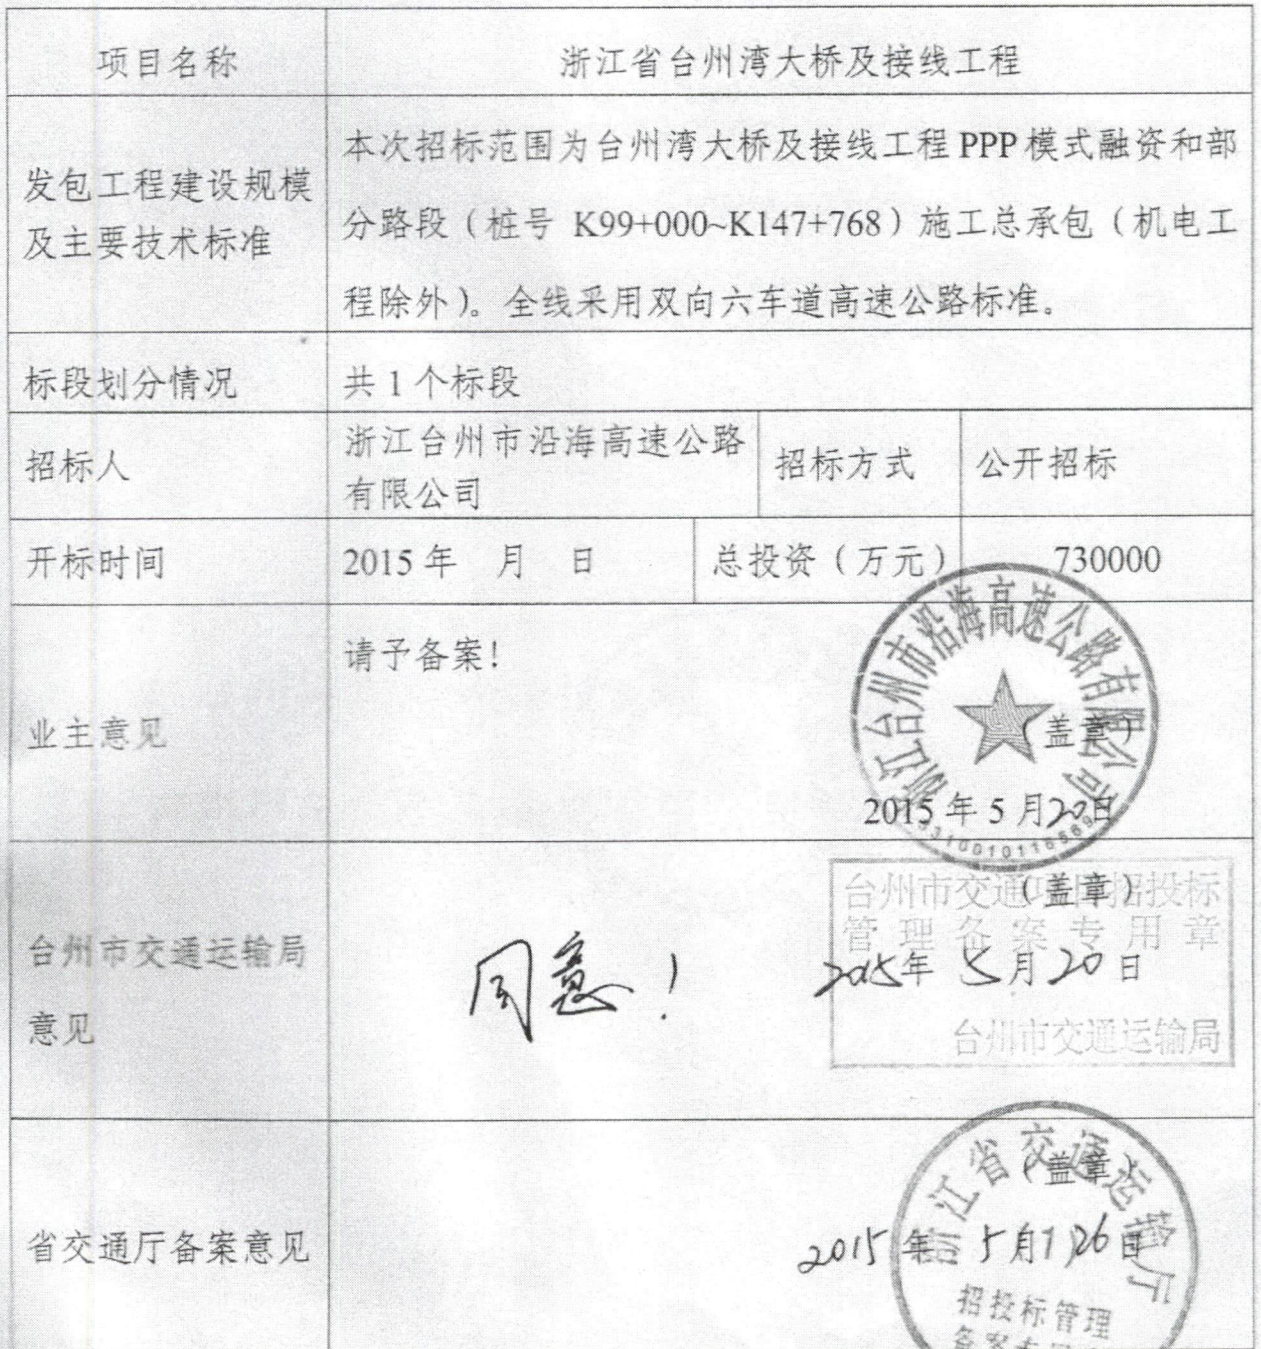 项目名称
浙江省台州湾大桥及接线工程
发包工程建设规模
及主要技术标准
本次招标范围为台州湾大桥及接线工程 PPP 模式融资和部
分路段（桩号 K99+000~K147+768）施工总承包（机电工
程除外）。全线采用双向六车道高速公路标准。
标段划分情况
共 1 个标段
招标人
浙江台州市沿海高速公路
有限公司
招标方式
公开招标
开标时间
2015 年 月 日
总投资（万元）
730000
业主意见
请予备案！
浙江台州市沿海高速公路有限公司
（盖章）
2015 年 5 月 20 日
台州市交通运输局
意见
同意！
台州市交通项目招投标
管理备案专用章
（盖章）
2015年 5月20日
台州市交通运输局
省交通厅备案意见
浙江省交通运输厅
（盖章）
2015 年 5月 26日
招投标管理